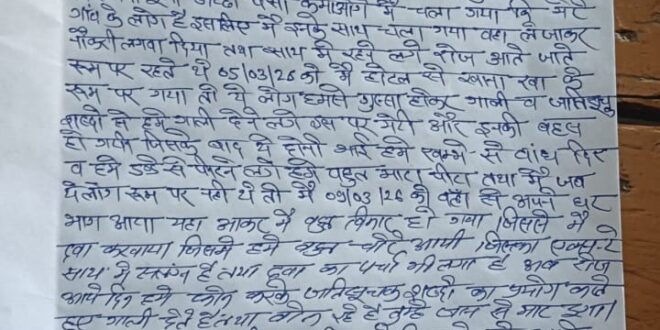 अच्छा पैसा कमाओगे मैं चला गया कि मेरे
गांव के लोग है इसलिए मैं इनके साथ चला गया वहा ले जाकर
नौकरी लगवा दिया तथा साथ में रहने लगे रोज आते जाते
रूम पर रहते थे 05/03/26 को मैं होटल से खाना खा के
रूम पर गया तो ये लोग हमसे गुस्सा होकर गाली व जातिसूचक
शब्दो से हमें गाली देने लगे इस पर मेरी और इनकी बहस
हो गयी जिसके बाद ये दोनो भाई हमे खम्भे से बांध दिए
व हमे डंडे से पीटने लगे हमे बहुत मारा पीटा तथा मैं जब
ये लोग रूम पर नही थे तो मैं 09/03/26 को वहा से अपने घर
भाग आया यहा आकर मैं बहुत बिमार हो गया जिससे मैं
दवा करवाया जिसमे हमे बहुत चोटे आयी जिसका एक्स-रे
साथ में संलग्न है तथा दवा का पर्चा भी लगा है अब रोज
आये दिन हमे फोन करके जातिसूचक शब्दो का प्रयोग करते
हुए गाली देते है तथा बोल रहे है तुम्हे जान से मार दूंगा।